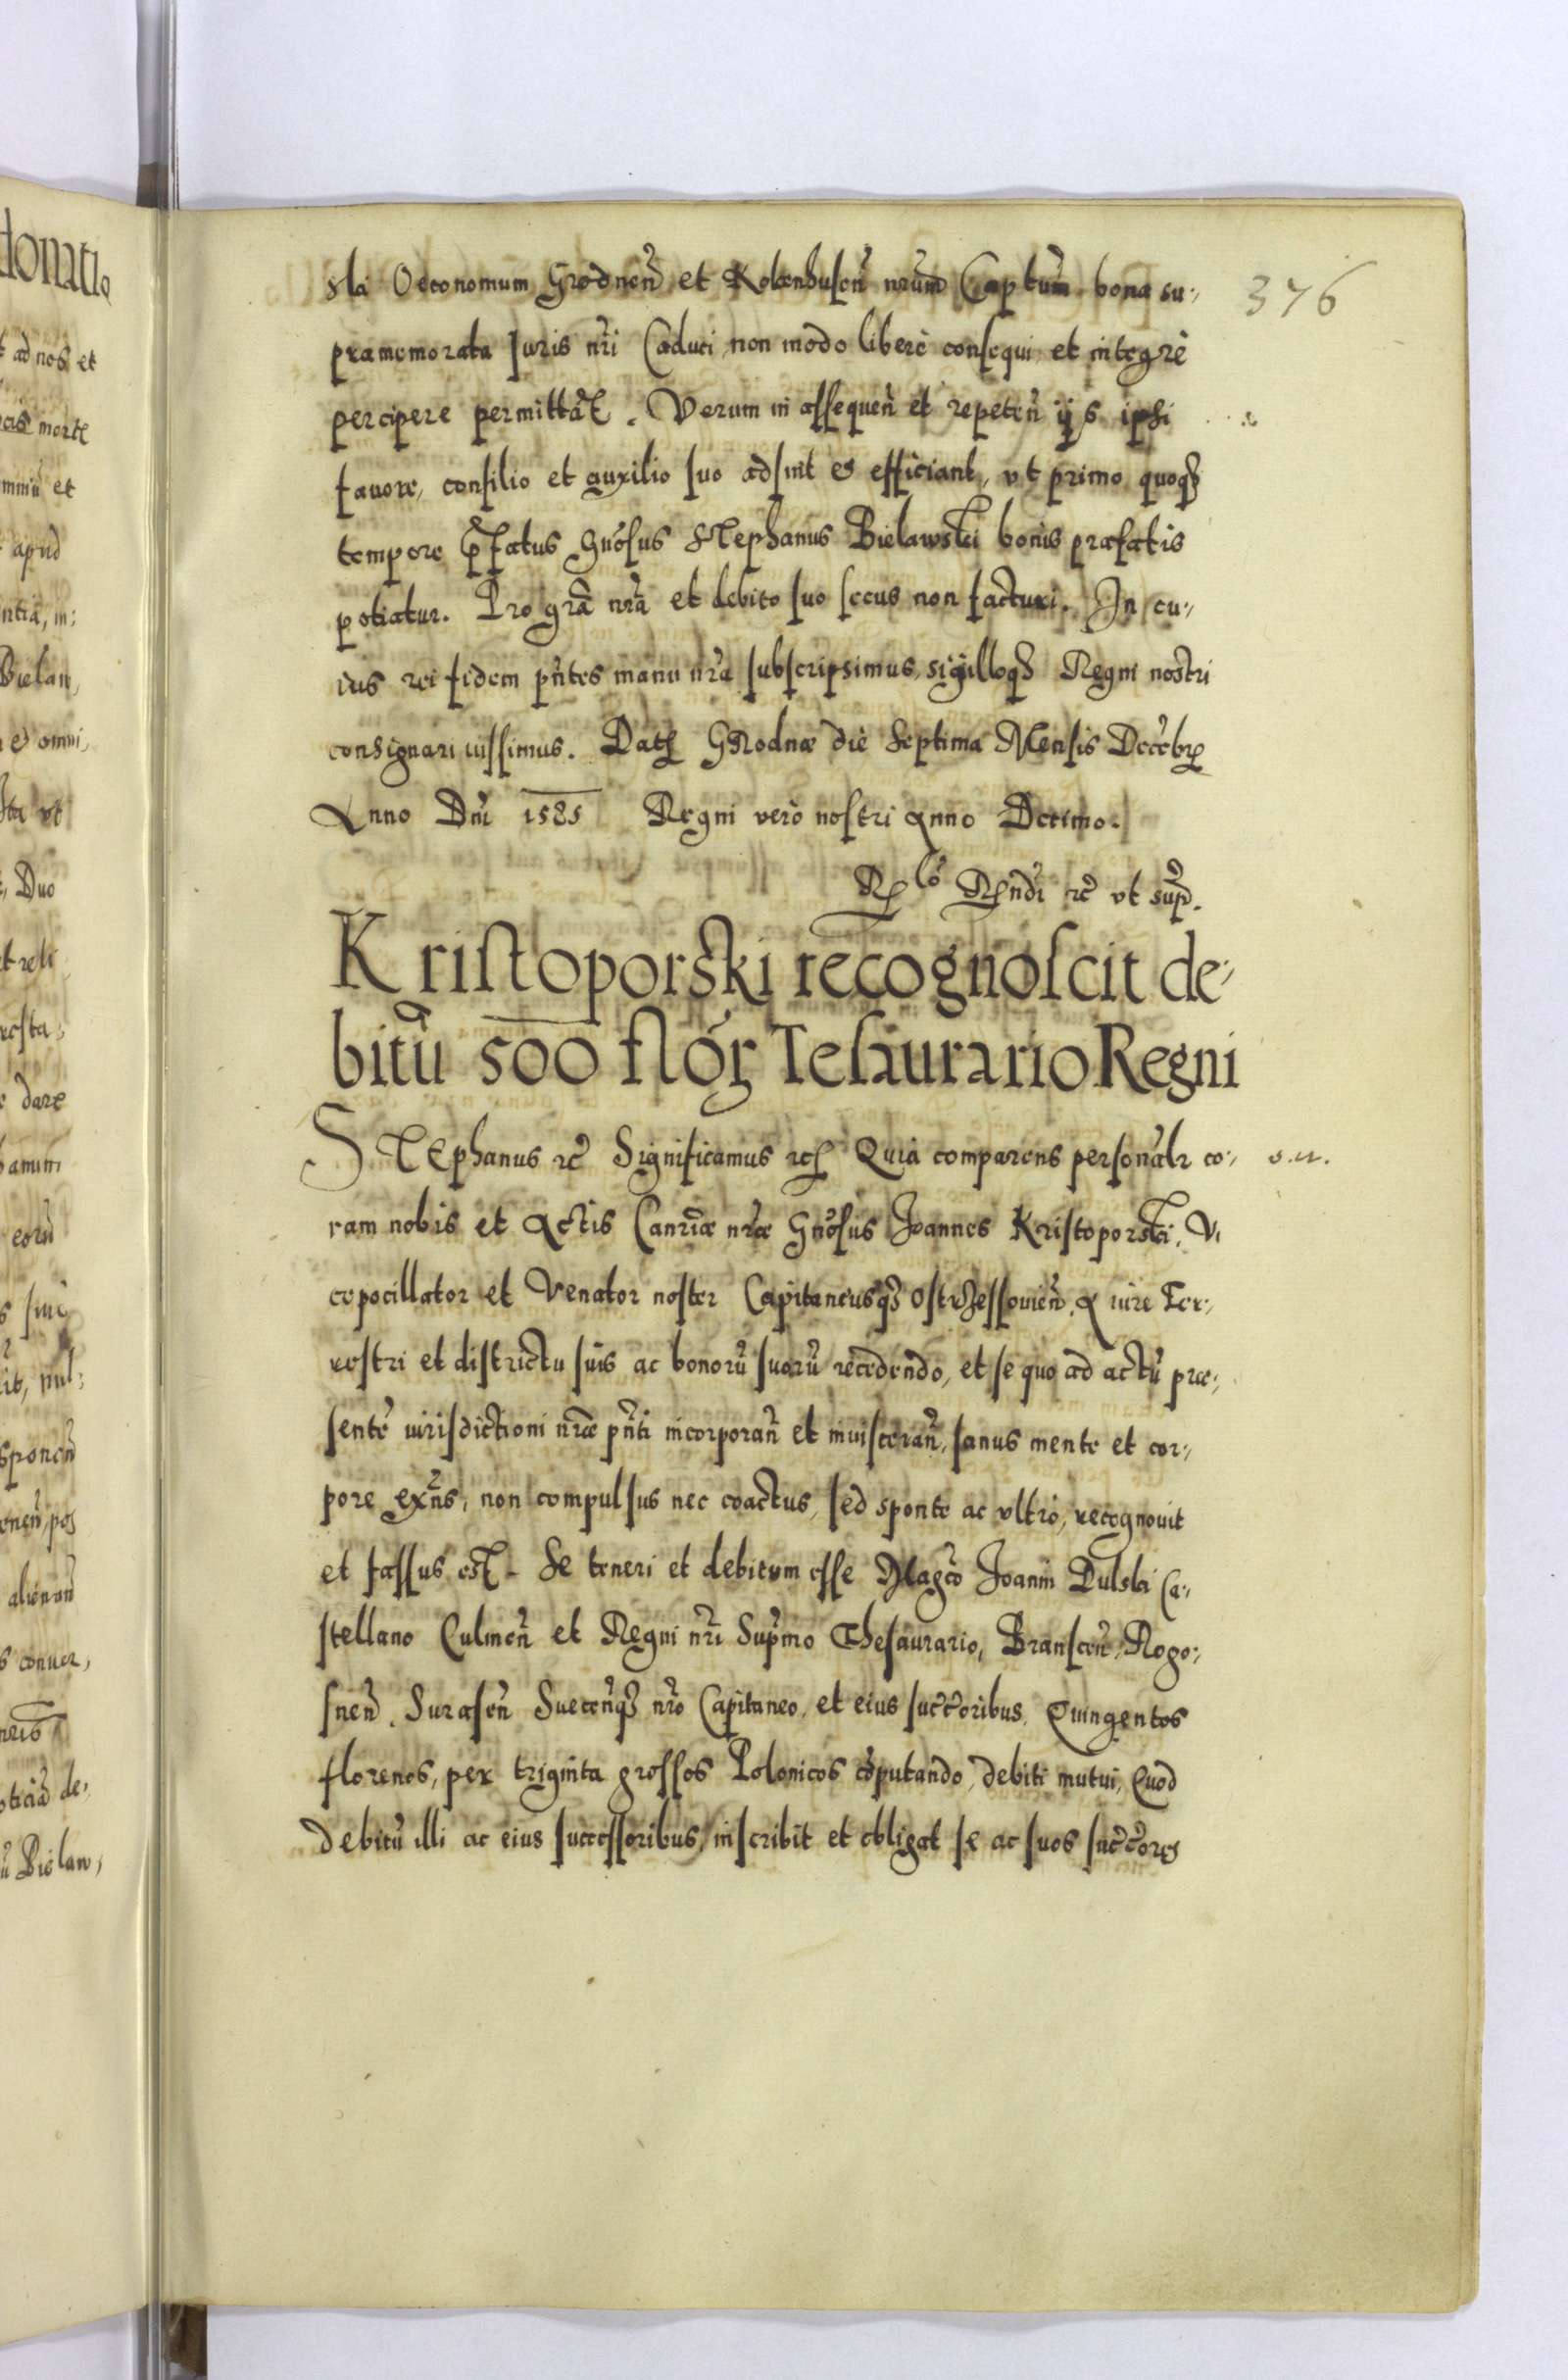 376
ski Oeconomum Grodneñ et Kokenhuseñ nrũm Captũm bona su-
pramemorata Iuris nri Caduci non modo liberè consequi et integrè
percipere permittãt. Verum in assequeñ et repeteñ ijs ipsi
fauore, consilio et auxilio suo adsint et efficiant, vt primo quoqȝ
tempore p̃fatus Gnõsus Stephanus Bielawski bonis præfatis
potiatur. Pro grã nrã et debito suo secus non facturi. In cu-
ius rei fidem pñtes manu nrã subscripsimus, sigilloqȝ Regni nostri
consignari iussimus. Datȝ GRodnæ die Septima Mensis Decẽbrȝ
Anno Dñi 1585 Regni verò nostri anno Decimo.
Rȝlõ Rȝndi rc̃ vt sup̃.
Kristoporski recognoscit de-
bitũ 500 flor̃ Tesaurario Regni
STEphanus rc̃ Significamus rcȝ Quia comparens personãlr co- s.n.
ram nobis et Actis Canrĩæ nr̃æ Gnõsus Joannes Kristoporski. Vi
cepocillator et Venator noster Capitaneusqȝ Ostrzessouieñ. A iure Ter-
restri et districtu suis ac bonorũ suorũ recedendo, et se quo ad actũ præ-
sentẽ iurisdictioni nr̃æ pñti incorporañ et inuisceran̄, sanus mente et cor-
pore exñs, non compulsus nec coactus, sed sponte ac vltrò, recognouit
et fassus est. Se teneri et debitum esse Magc̃o Joanni Dulski Ca-
stellano Culmeñ et Regni nr̃i Sup̃mo Thesaurario, Bransceñ, Rogo-
sneñ. Suraseñ Suecenqȝ nr̃o Capitaneo, et eius succ̃oribus, Quingentos
florenos, per triginta grossos Polonicos cõputando, debiti mutui, Quod
debitũ illi ac eius successoribus, inscribit et obligat se ac suos succ̃ores